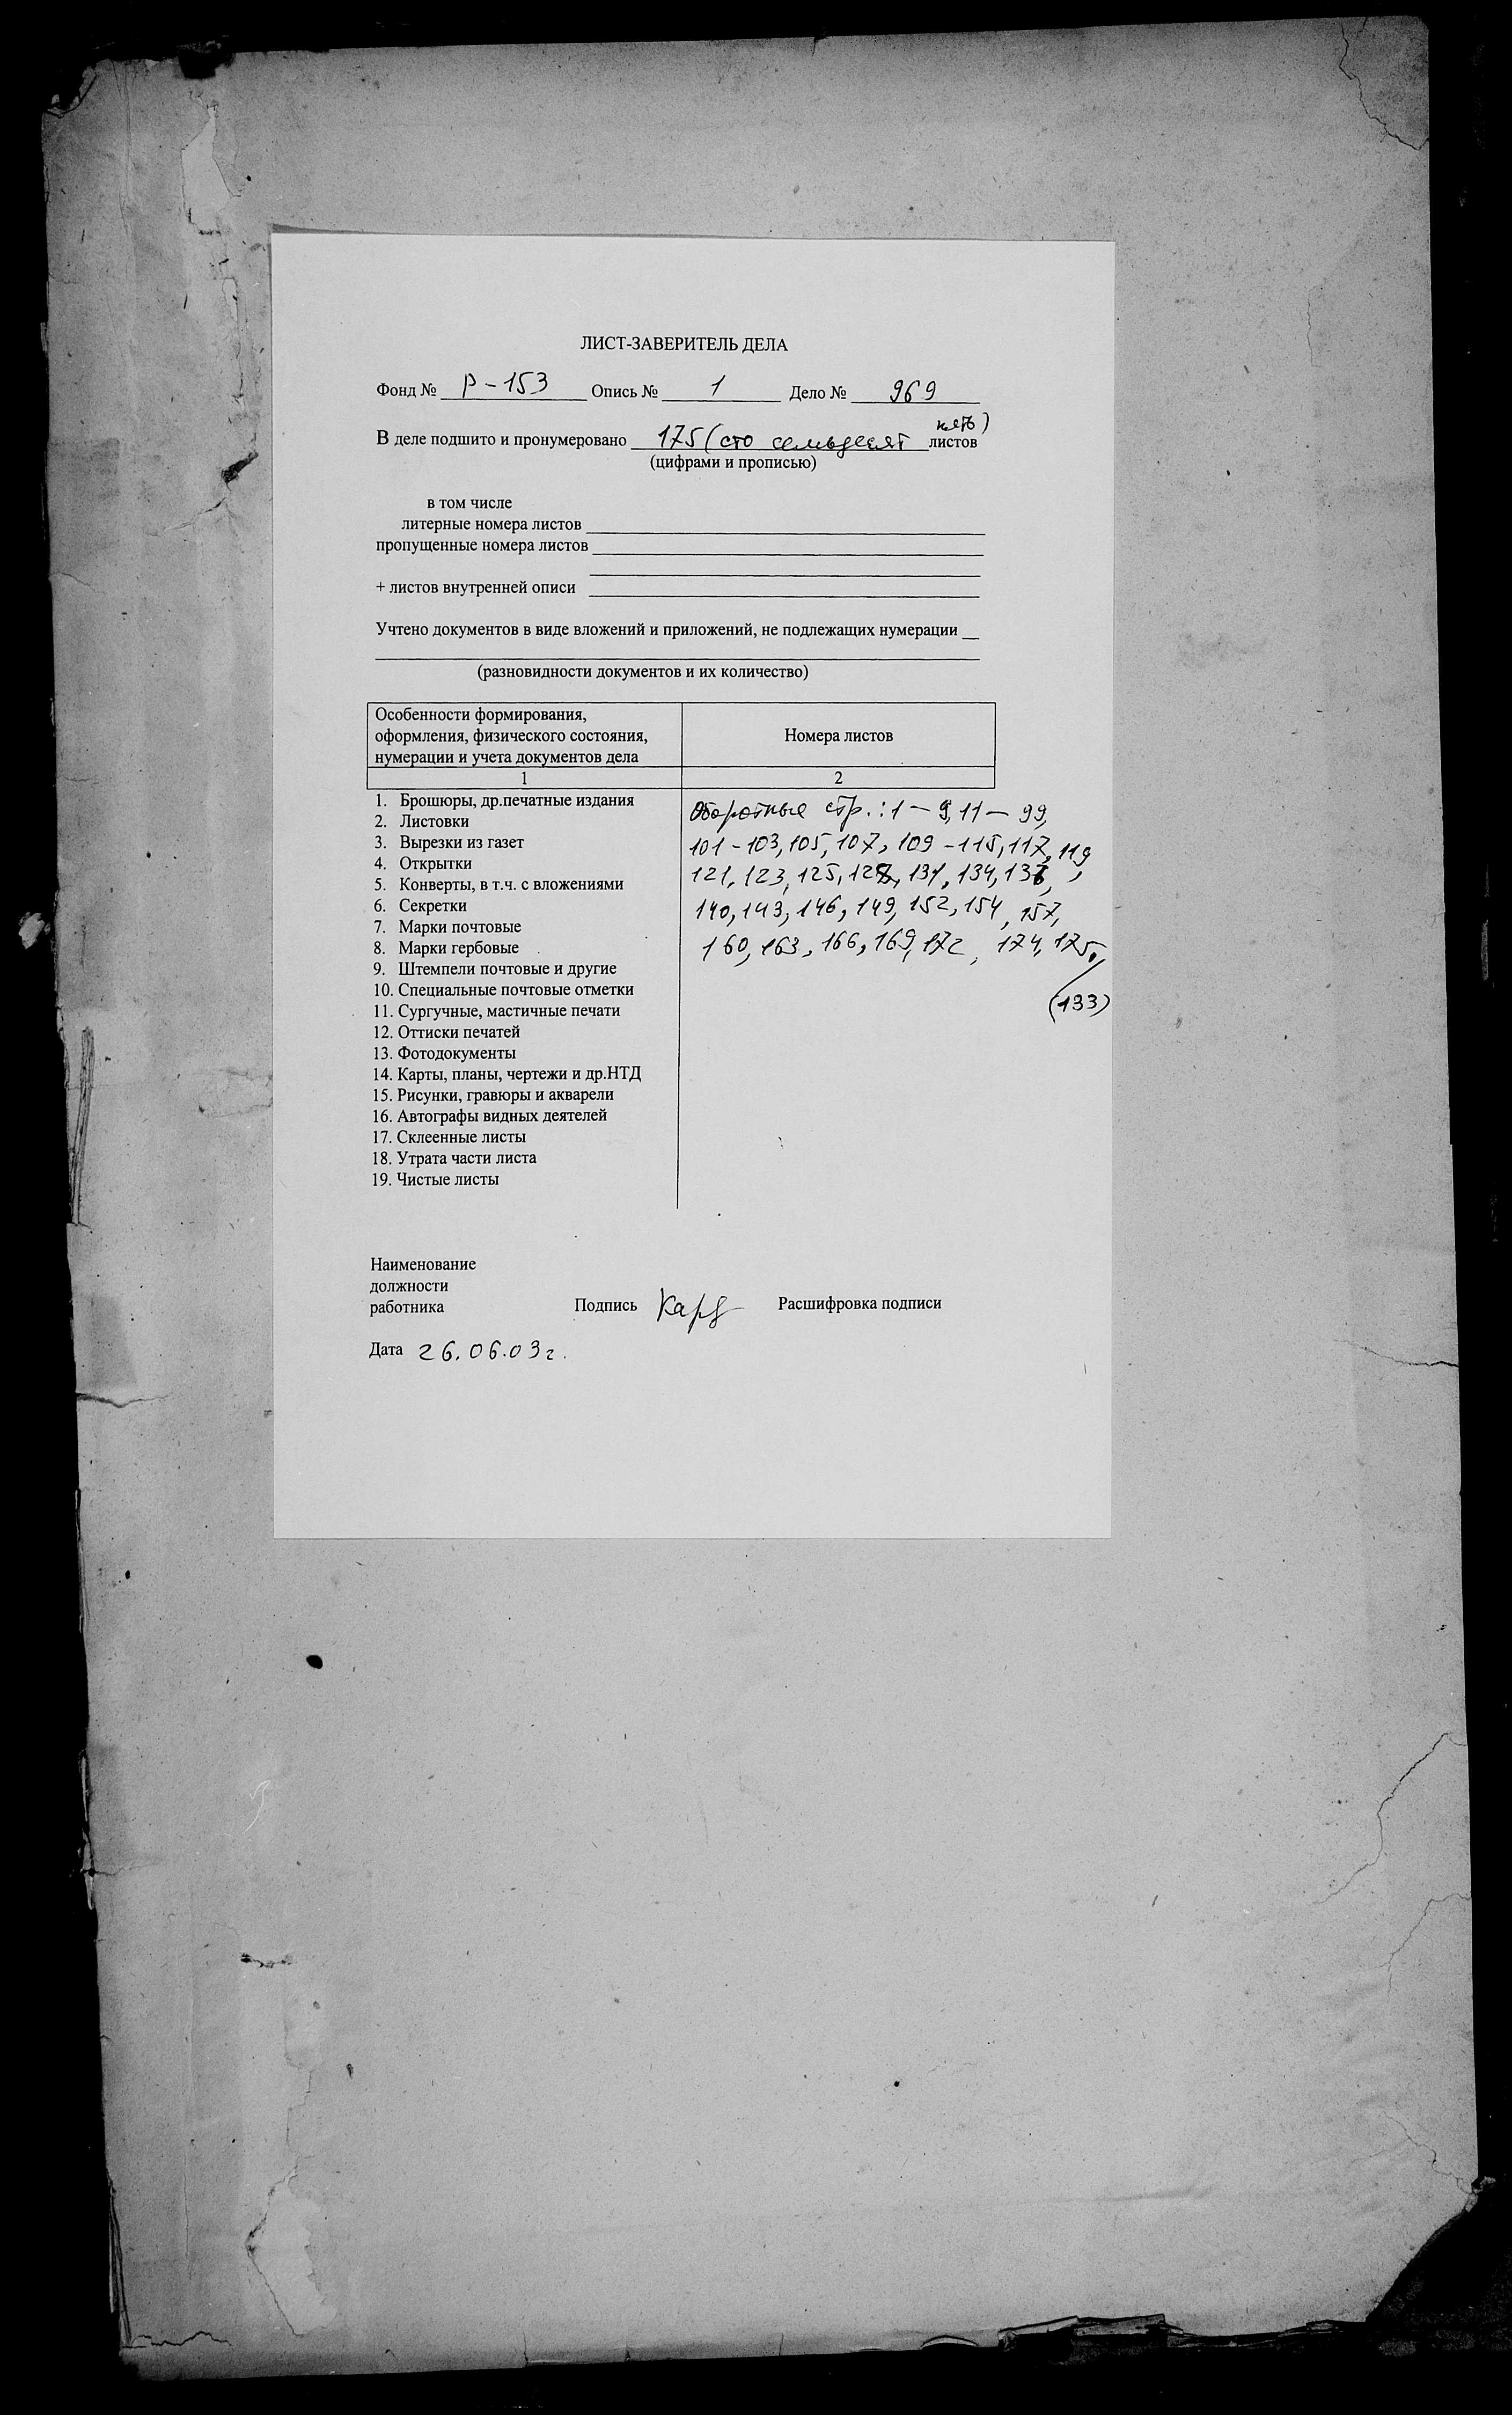 ЛИСТ-ЗАВЕРИТЕЛЬ ДЕЛА
Фонд № Р-153 Опись № 1 Дело № 969
В деле подшито и пронумеровано 175 (сто семьдесят пять) листов
(цифрами и прописью)
в том числе
литерные номера листов
пропущенные номера листов
+ листов внутренней описи
Учтено документов в виде вложений и приложений, не подлежащих нумерации
(разновидности документов и их количество)
Особенности формирования,
оформления, физического состояния,
нумерации и учета документов дела
Номера листов
1 2
1. Брошюры, др.печатные издания
2. Листовки
3. Вырезки из газет
4. Открытки
5. Конверты, в т.ч. с вложениями
6. Секретки
7. Марки почтовые
8. Марки гербовые
9. Штемпели почтовые и другие
10. Специальные почтовые отметки
11. Сургучные, мастичные печати
12. Оттиски печатей
13. Фотодокументы
14. Карты, планы, чертежи и др.НТД
15. Рисунки, гравюры и акварели
16. Автографы видных деятелей
17. Склеенные листы
18. Утрата части листа
19. Чистые листы
Оборотные стр.: 1 – 9, 11 – 99,
101 - 103, 105, 107, 109 - 115, 117, 119,
121, 123, 125, 131, 134,
140, 143, 146, 149, 152, 154, 157,
160, 163, 166, 169, 172, 174, 175.
(133)
Наименование
должности
работника Подпись Расшифровка подписи
Дата 26.06.03 г.